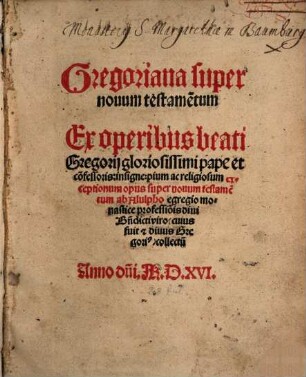 Monasterij S. Margarethae in Baumburg
Gregoriana super
novum testamẽtum
Ex operibus beati
Gregorij gloriosissimi pape et
cõfessoris: insigne: pium ac religiosum ex
ceptionum opus super novum testamẽ
tum ab Alulpho egregio mo
nastice professiõis divi
Bñdicti viro: cuius
fuit & divus Gre
gori⁹ ꝯllectũ
Anno dñi. M.D.XVI.